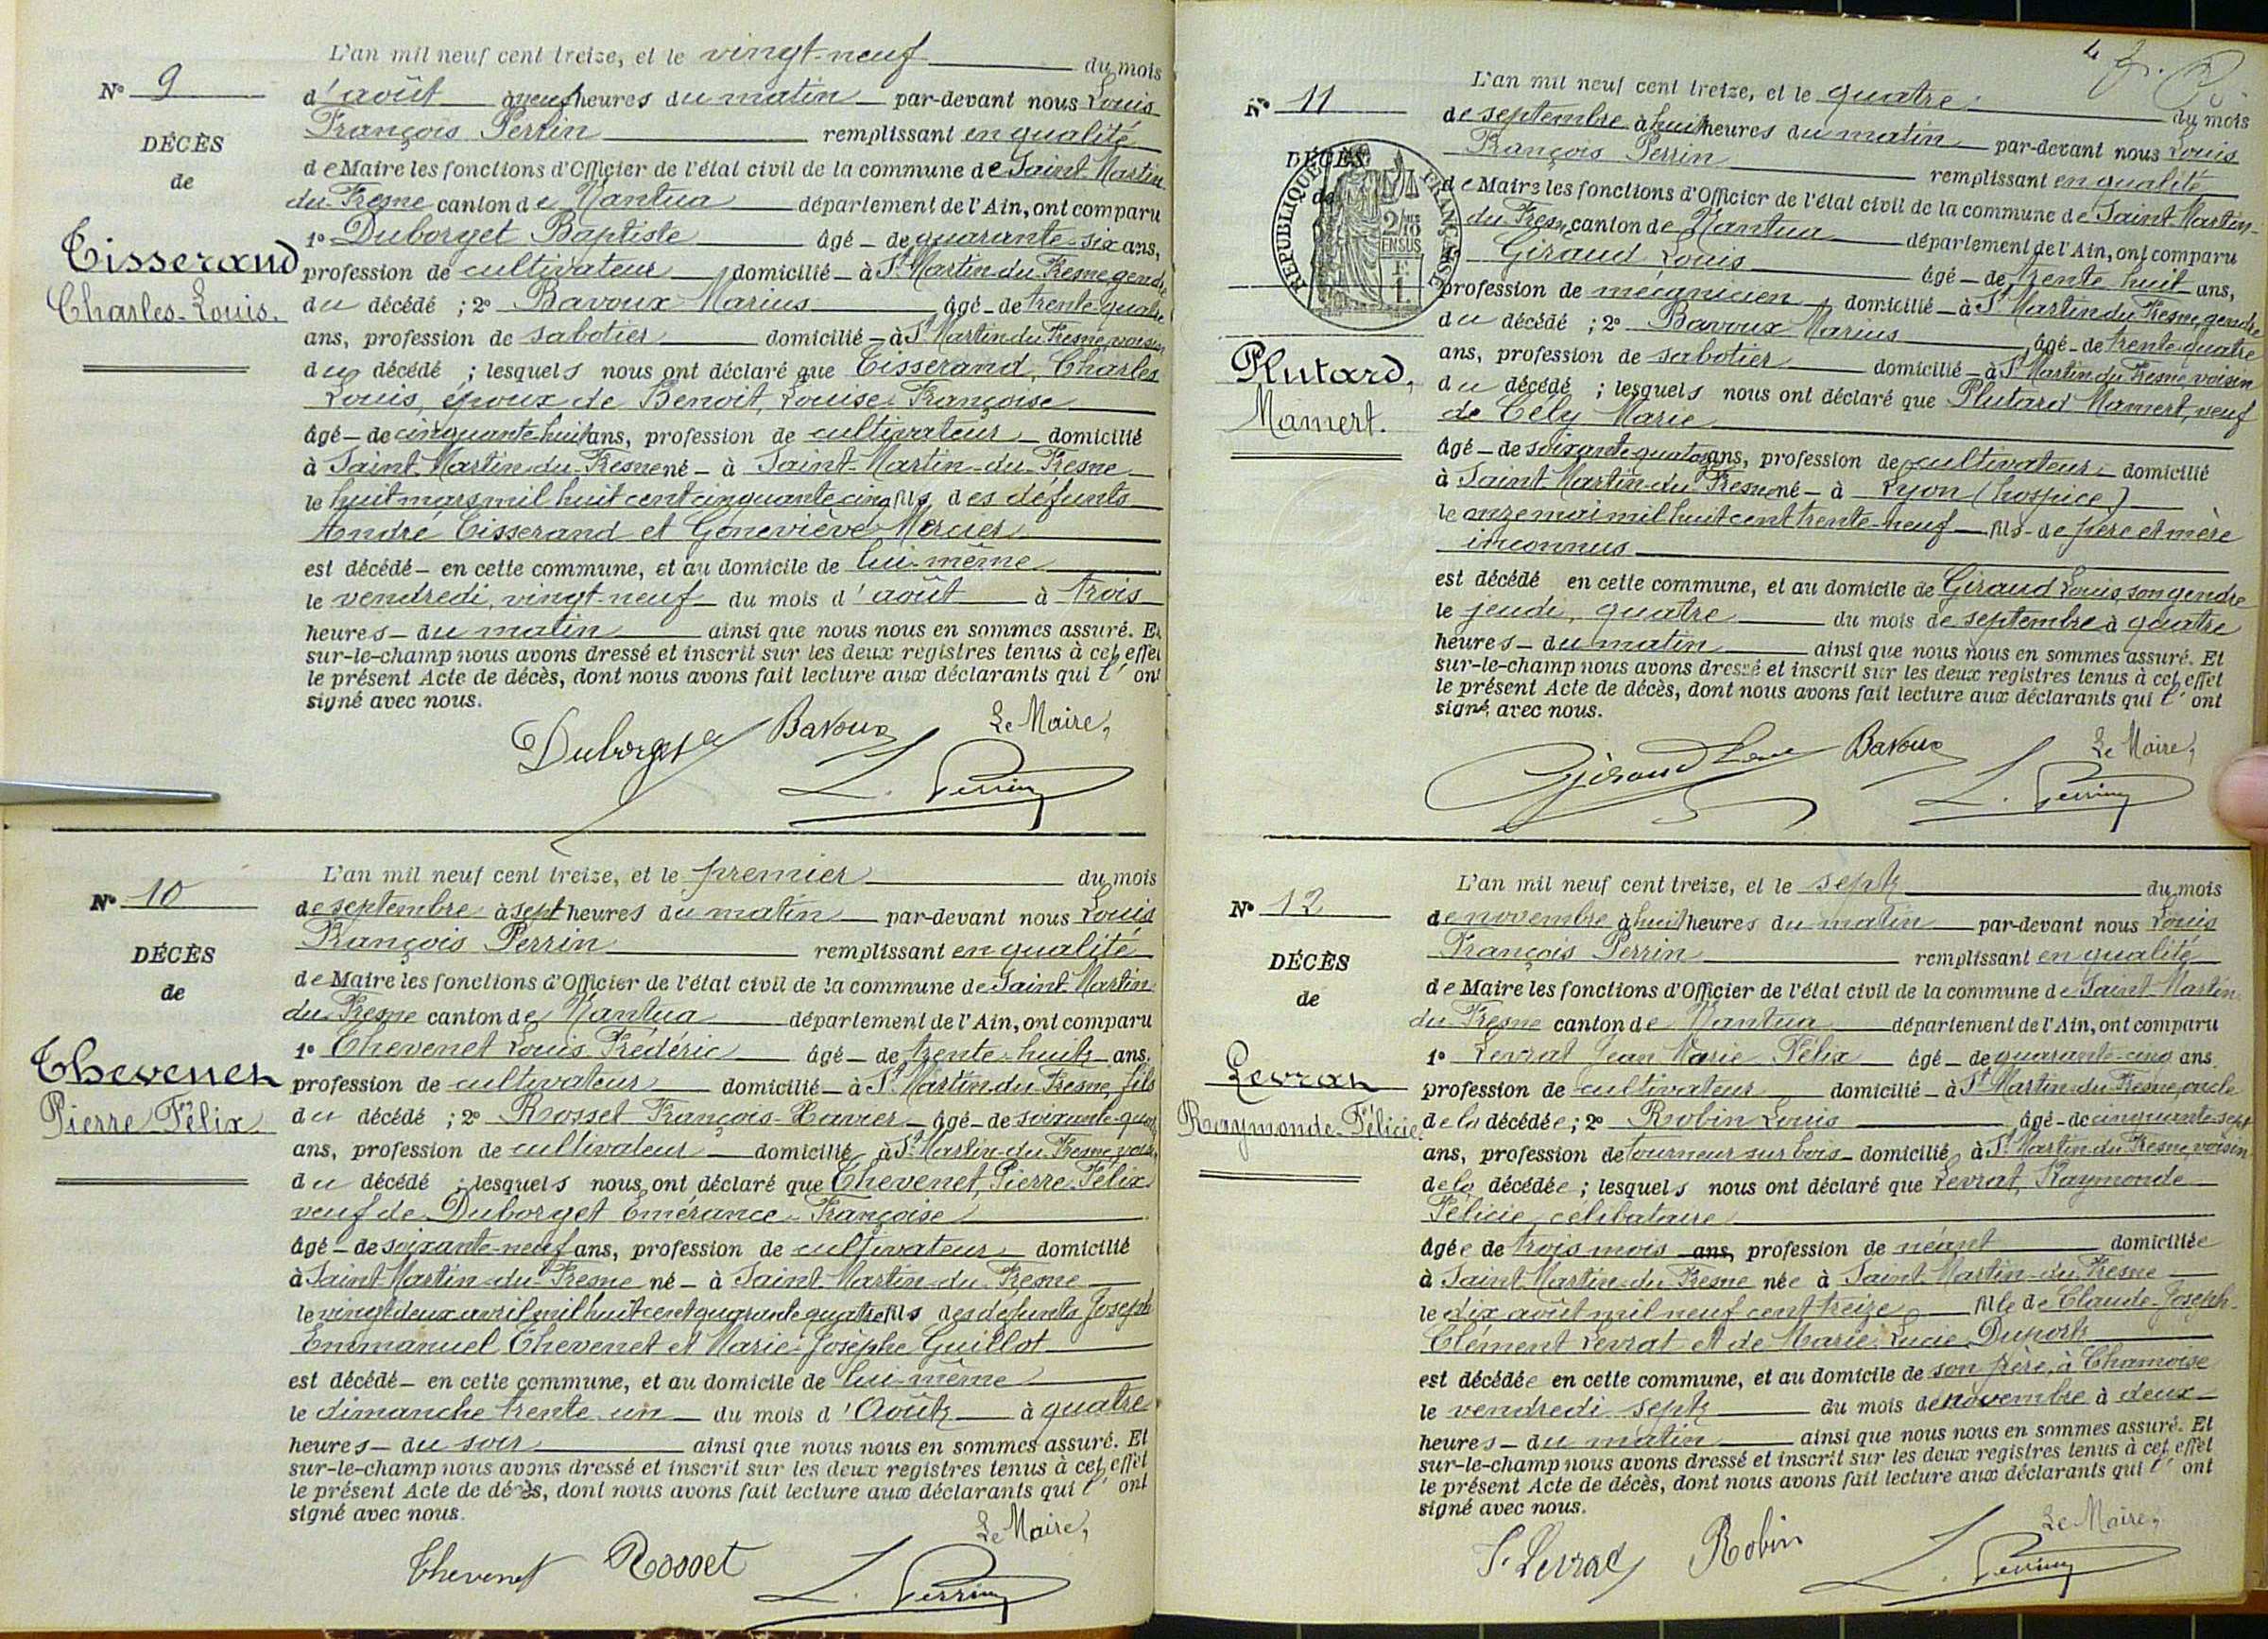 L'an mil neuf cent treize, et le vingt-neuf du mois
N° 9
d'août à neuf heures du matin par-devant nous Louis
François Perrin remplissant en qualité
DÉCÈS
de Maire les fonctions d'Officier de l'état civil de la commune de Saint-Martin
de
du-Fresne canton de Nantua département de l'Ain, ont comparu
1° Duborget Baptiste âgé de quarante-six ans,
Tisserand
profession de cultivateur domicilié à St Martin du Fresne, gendre
Charles-Louis.
du décédé ; 2° Bavoux Marius âgé de trente-quatre
ans, profession de sabotier domicilié à St Martin du Fresne, voisin
du décédé ; lesquels nous ont déclaré que Tisserand, Charles
Louis, époux de Benoit, Louise-Françoise
âgé de cinquante huit ans, profession de cultivateur domicilié
à Saint-Martin-du-Fresne né à Saint-Martin-du-Fresne
le huit mars mil huit cent cinquante cinq fils des défunts
André Tisserand et Geneviève Mercier
est décédé en cette commune, et au domicile de lui-même
le vendredi, vingt-neuf du mois d'août à trois
heures du matin ainsi que nous nous en sommes assuré. Et
sur-le-champ nous avons dressé et inscrit sur les deux registres tenus à cet effet
le présent Acte de décès, dont nous avons fait lecture aux déclarants qui l'ont
signé avec nous.
Le Maire,
Duborget Bavoux
L. Perrin
L'an mil neuf cent treize, et le premier du mois
N° 10
de septembre à sept heures du matin par-devant nous Louis
François Perrin remplissant en qualité
DÉCÈS
de Maire les fonctions d'Officier de l'état civil de la commune de Saint-Martin
de
du-Fresne canton de Nantua département de l'Ain, ont comparu
1° Thevenet Louis Frédéric âgé de trente-huit ans,
Thevenet
profession de cultivateur domicilié à St Martin du Fresne, fils
Pierre Félix
du décédé ; 2° Rosset François-Xavier âgé de soixante-quatre
ans, profession de cultivateur domicilié à St Martin-du-Fresne, voisin
du décédé ; lesquels nous ont déclaré que Thevenet, Pierre Félix
veuf de Duborget Emérance-Françoise
âgé de soixante-neuf ans, profession de cultivateur domicilié
à Saint-Martin-du-Fresne né à Saint-Martin-du-Fresne
le vingt deux avril mil huit cent quarante quatre fils des défunts Joseph
Emmanuel Thevenet et Marie-Josèphe Guillot
est décédé en cette commune, et au domicile de lui-même
le dimanche trente un du mois d'Août à quatre
heures du soir ainsi que nous nous en sommes assuré. Et
sur-le-champ nous avons dressé et inscrit sur les deux registres tenus à cet effet
le présent Acte de décès, dont nous avons fait lecture aux déclarants qui l'ont
signé avec nous.
Le Maire,
Thevenet Rosset
L. Perrin
4
L'an mil neuf cent treize, et le quatre du mois
N° 11
de septembre à huit heures du matin par-devant nous Louis
François Perrin remplissant en qualité
DÉCÈS
de Maire les fonctions d'Officier de l'état civil de la commune de Saint-Martin-
de
RÉPUBLIQUE FRANÇAISE
2/10 EN SUS
du-Fresne canton de Nantua département de l'Ain, ont comparu
1° Giraud Louis âgé de trente huit ans,
profession de mécanicien domicilié à St Martin du Fresne, gendre
du décédé ; 2° Bavoux Marius âgé de trente-quatre
Plutard,
ans, profession de sabotier domicilié à St Martin du Fresne, voisin
Mamert.
du décédé ; lesquels nous ont déclaré que Plutard Mamert, veuf
de Cély Marie
âgé de soixante-quatorze ans, profession de cultivateur domicilié
à Saint-Martin-du-Fresne né à Lyon (hospice)
le onze mai mil huit cent trente-neuf fils de père et mère
inconnus
est décédé en cette commune, et au domicile de Giraud Louis, son gendre
le jeudi, quatre du mois de septembre à quatre
heures du matin ainsi que nous nous en sommes assuré. Et
sur-le-champ nous avons dressé et inscrit sur les deux registres tenus à cet effet
le présent Acte de décès, dont nous avons fait lecture aux déclarants qui l'ont
signé avec nous.
Le Maire,
Giraud Bavoux
L. Perrin
L'an mil neuf cent treize, et le sept du mois
N° 12
de novembre à huit heures du matin par-devant nous Louis
François Perrin remplissant en qualité
DÉCÈS
de Maire les fonctions d'Officier de l'état civil de la commune de Saint-Martin
de
du-Fresne canton de Nantua département de l'Ain, ont comparu
1° Levrat Jean Marie Félix âgé de quarante-cinq ans
Levrat
profession de cultivateur domicilié à St Martin-du-Fresne, oncle
Raymonde-Félicie.
de la décédée ; 2° Robin Louis âgé de cinquante-sept
ans, profession de tourneur sur bois domicilié à St Martin du Fresne, voisin
de la décédée ; lesquels nous ont déclaré que Levrat, Raymonde
Félicie, célibataire
âgée de trois mois ans, profession de néant domiciliée
à Saint-Martin-du-Fresne née à Saint-Martin-du-Fresne
le dix août mil neuf cent treize fille de Claude-Joseph-
Clément Levrat et de Marie-Lucie Duport
est décédée en cette commune, et au domicile de son père, à Chamoise
le vendredi sept du mois de novembre à deux
heures du matin ainsi que nous nous en sommes assuré. Et
sur-le-champ nous avons dressé et inscrit sur les deux registres tenus à cet effet
le présent Acte de décès, dont nous avons fait lecture aux déclarants qui l'ont
signé avec nous.
Le Maire,
Levrat Robin
L. Perrin